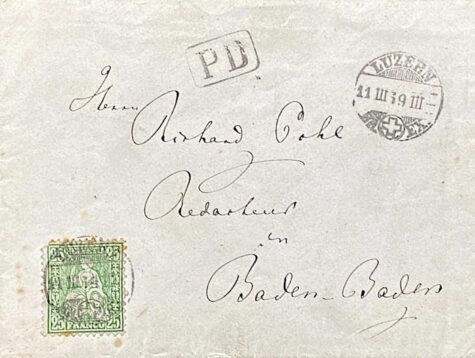 PD
LUZERN
11 III 69 III
Herrn
Richard Pohl
Redacteur
in
Baden-Baden
25 25
25 FRANCO 25